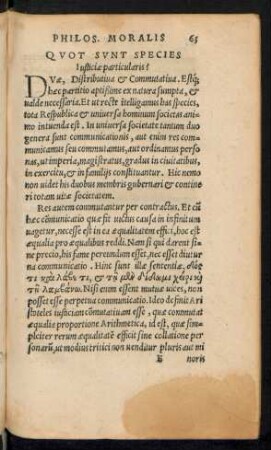 PHILOS. MORALIS 65
QVOT SVNT SPECIES
Iusticiæ particularis?
DVæ, Distributiua & Commutatiua. Estq́;
hæc partitio aptissime ex natura sumpta, &
ualde necessaria. Et ut recte ĩtelligamus has species,
tota Respublica & uniuersa hominum societas animo
intuenda est. In uniuersa societate tantum duo
genera sunt communicationis, aut enim res communicamus
seu commutamus, aut ordinamus personas,
ut imperia, magistratus, gradus in ciuitatibus,
in exercitu, & in familijs constituantur. Hic nemo
non uidet his duobus membris gubernari & contineri
totam uitæ societatem.
Res autem commutantur per contractus. Et cũ
hæc cõmunicatio quæ fit uictus causa in infinitum
uagetur, necesse est in ea æqualitatem effici, hoc est
æqualia pro æqualibus reddi. Nam si qui darent sine
precio, his fame pereundum esset, nec esset diuturna
communicatio. Hinc sunt illæ sententiæ, δός
τι καὶ λάβε τι, &
τῇ λαμβάνω. Nisi enim essent mutuæ uices, non
posset esse perpetua communicatio. Ideo definit Aristoteles
iusticiam cõmutatiuam esse, quæ commutat
æqualia proportione Arithmetica, id est, quæ simpliciter
rerum æqualitatẽ efficit sine collatione personarũ,
ut modius tritici non uenditur pluris aut mi
E noris